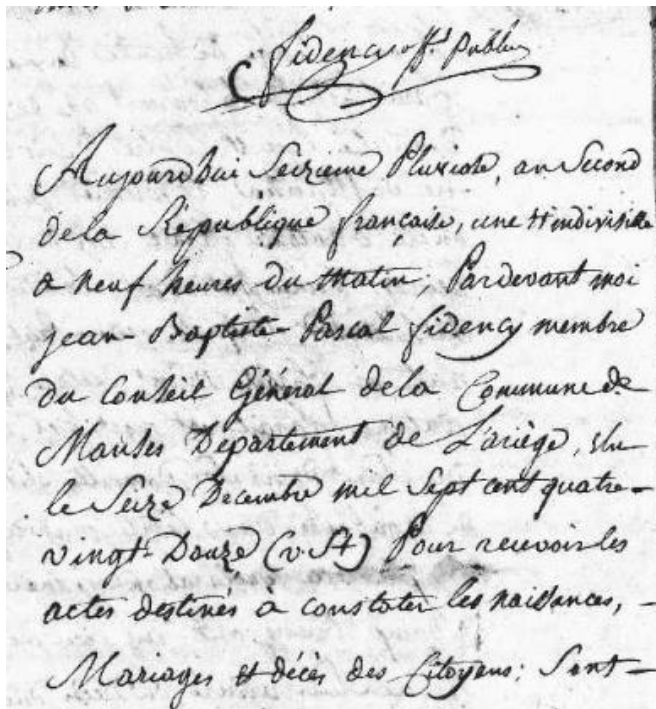 fidency off. Public
Aujourdhui Seizieme Pluviose, an Second
dela République française, une et indivisible
a neuf heures du matin, Pardevant moi
jean-Baptiste-Pascal fidency membre
du Conseil Général dela Commune de
Manses Département de L'ariège, élu
le Seize Decembre mil Sept cent quatre-
vingt-Douze (v. St) Pour recevoir les
actes destinés à constater les naissances, -
Mariages et décès des Citoyens: Sont-